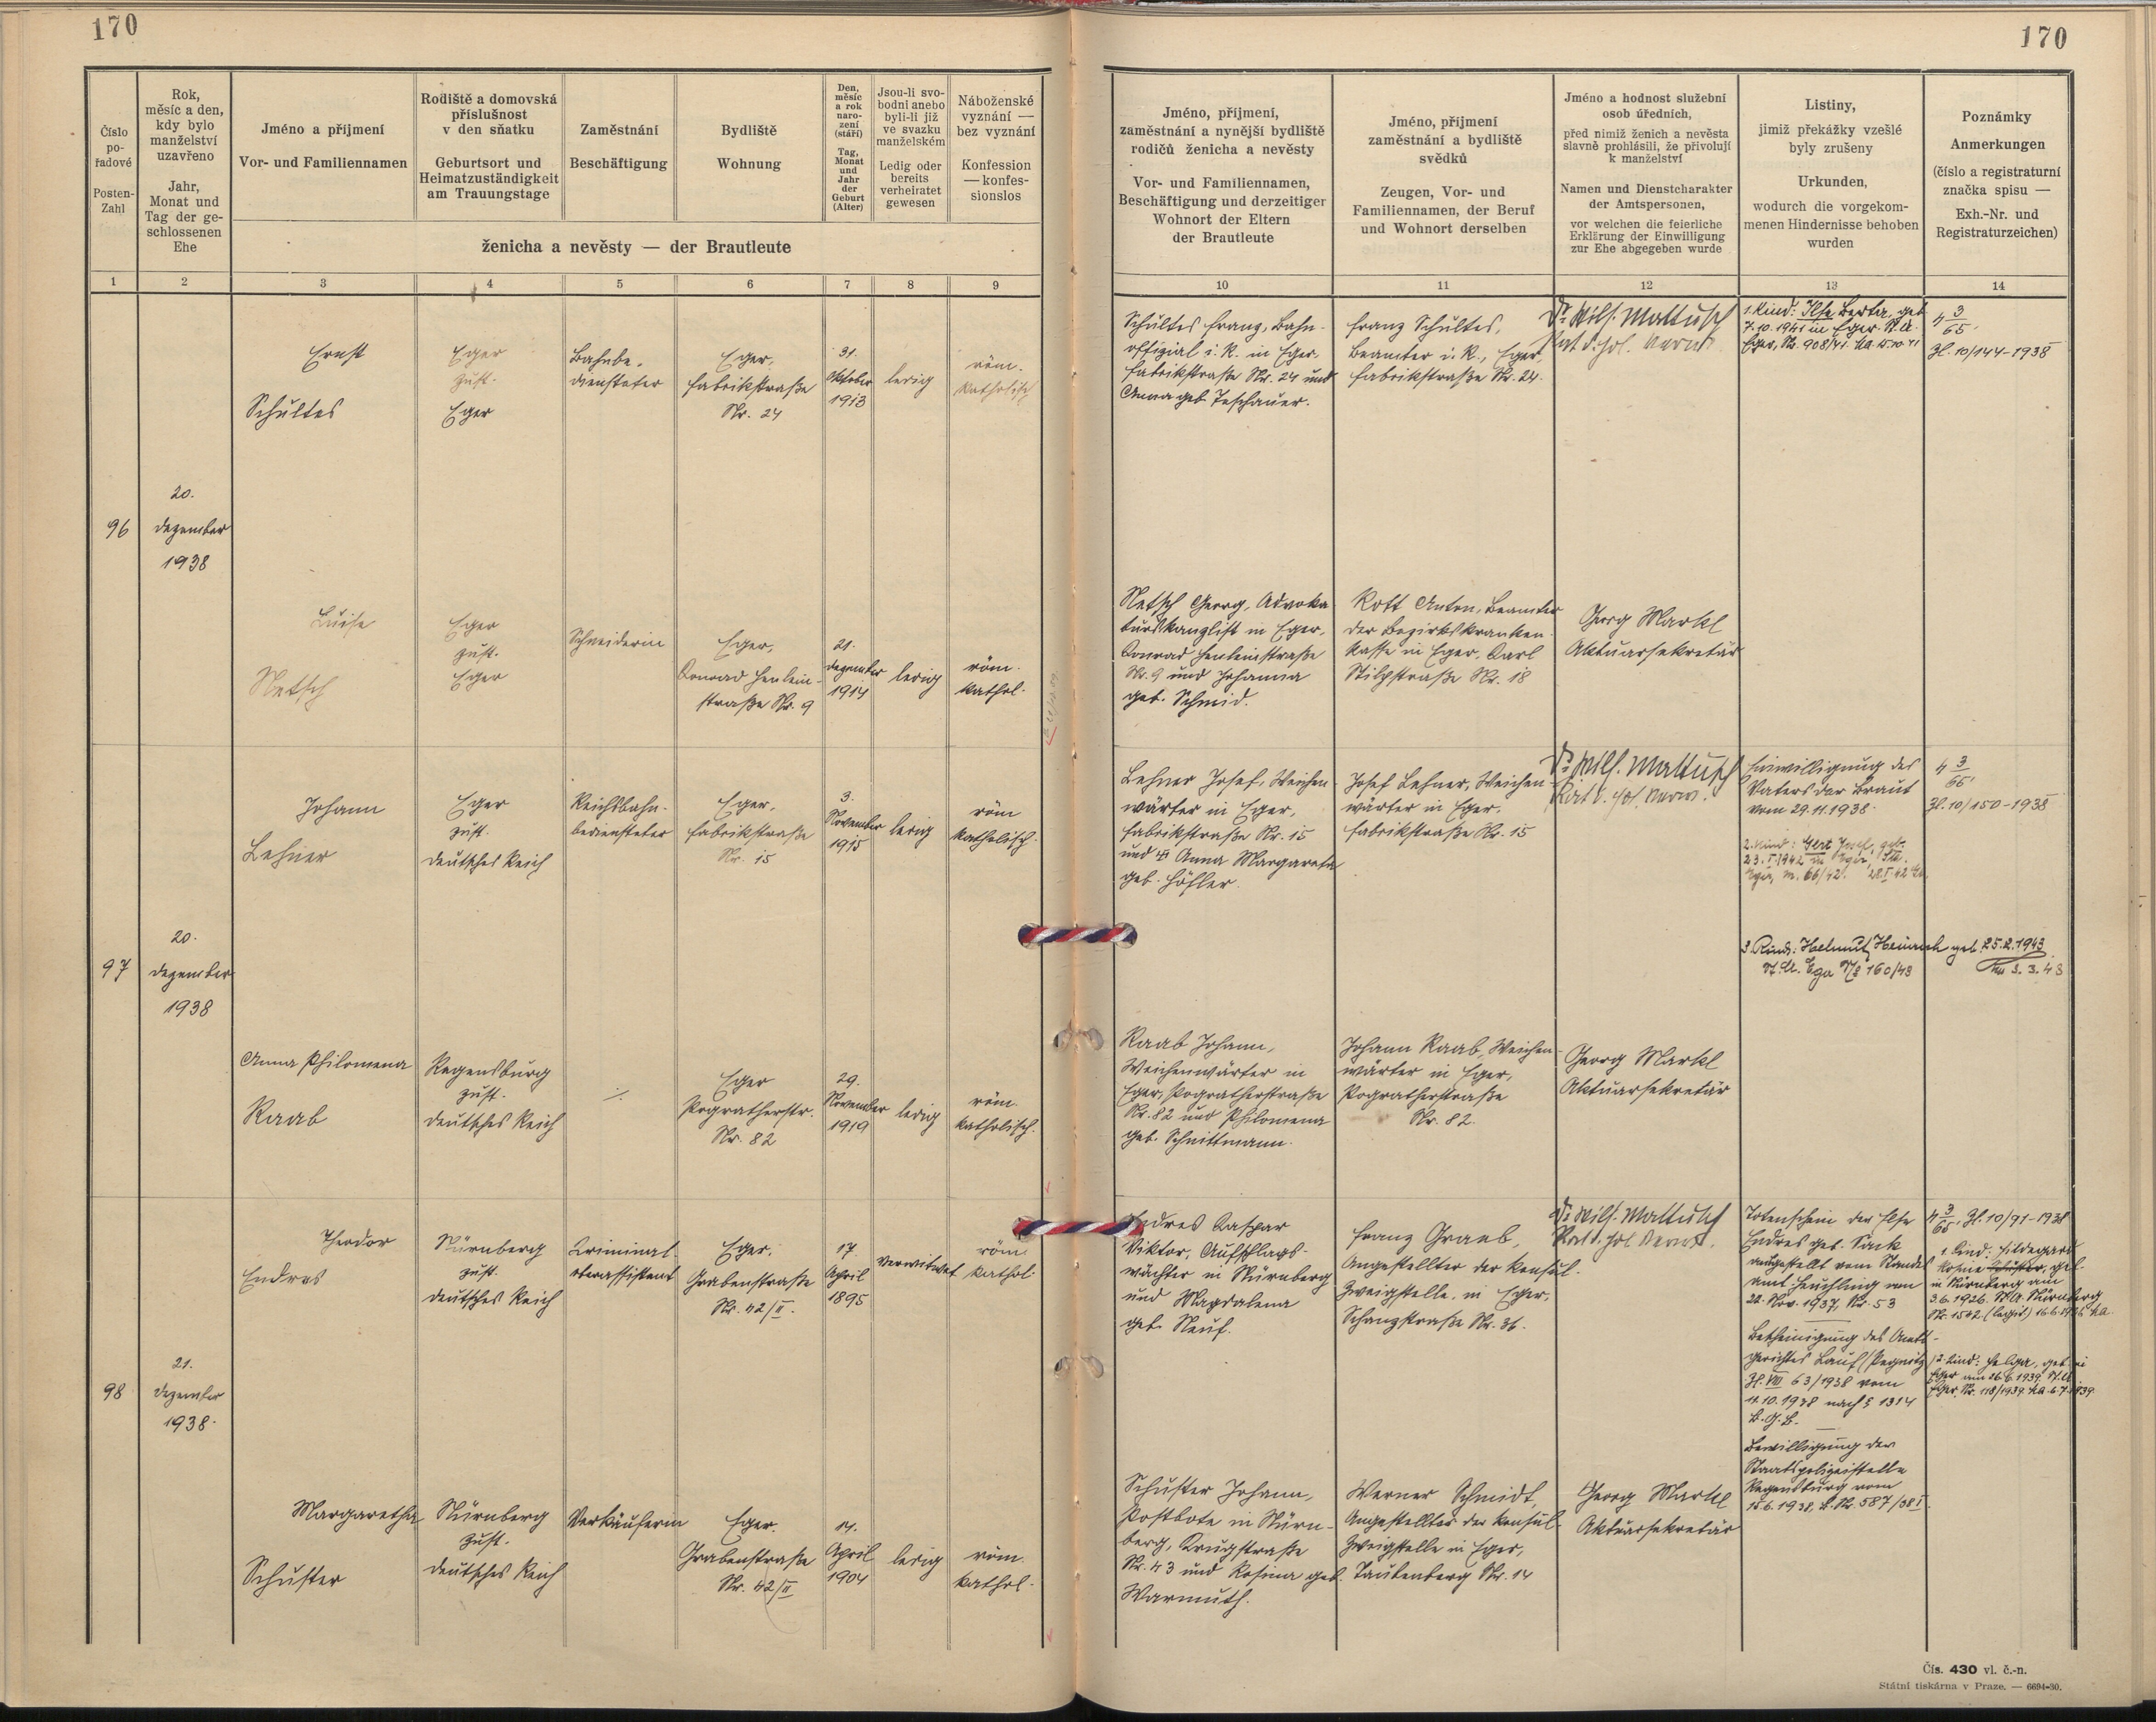 170
170
Číslo
po-
řadové
Posten-
Zahl
Rok,
měsíc a den,
kdy bylo
manželství
uzavřeno
Jahr,
Monat und
Tag der ge-
schlossenen
Ehe
Jméno a příjmení
Vor- und Familiennamen
Rodiště a domovská
příslušnost
v den sňatku
Geburtsort und
Heimatzuständigkeit
am Trauungstage
Zaměstnání
Beschäftigung
Bydliště
Wohnung
Den,
měsíc
a rok
naro-
zení
(stáří)
Tag,
Monat
und
Jahr
der
Geburt
(Alter)
Jsou-li svo-
bodni anebo
byli-li již
ve svazku
manželském
Ledig oder
bereits
verheiratet
gewesen
Náboženské
vyznání —
bez vyznání
Konfession
— konfes-
sionslos
ženicha a nevěsty — der Brautleute
Jméno, příjmení,
zaměstnání a nynější bydliště
rodičů ženicha a nevěsty
Vor- und Familiennamen,
Beschäftigung und derzeitiger
Wohnort der Eltern
der Brautleute
Jméno, příjmení
zaměstnání a bydliště
svědků
Zeugen, Vor- und
Familiennamen, der Beruf
und Wohnort derselben
Jméno a hodnost služební
osob úředních,
před nimiž ženich a nevěsta
slavně prohlásili, že přivolují
k manželství
Namen und Dienstcharakter
der Amtspersonen,
vor welchen die feierliche
Erklärung der Einwilligung
zur Ehe abgegeben wurde
Listiny,
jimiž překážky vzešlé
byly zrušeny
Urkunden,
wodurch die vorgekom-
menen Hindernisse behoben
wurden
Poznámky
Anmerkungen
(číslo a registraturní
značka spisu —
Exh.-Nr. und
Registraturzeichen)
1 2 3 4 5 6 7 8 9 10 11 12 13 14
96
20.
Dezember
1938
Ernst
Schultes
Eger
zust.
Eger
Bahnbe-
diensteter
Eger,
Fabrikstraße
Nr. 24
31.
Oktober
1913
ledig
röm.
katholisch
Schultes Franz, Bahn-
offizial i. R. in Eger,
Fabrikstraße Nr. 24 und
Anna geb. Teschauer.
Franz Schultes,
Beamter i. R., Eger
Fabrikstraße Nr. 24.
Dr. Wilh. Mattusch
1. Kind: Ilse Berta, geb
7.10.1941 in Eger. St. A.
Eger, Nr. 908/41. 15.10.41
4 3/65.
Zl. 10/144-1938
Luise
Netsch
Eger
zust.
Eger
Schneiderin
Eger,
Konrad Henlein-
straße Nr. 9
21.
Dezember
1914
ledig
röm.
kathol.
Netsch Georg, Advoka-
turskanzlist in Eger,
Konrad Henleinstraße
Nr. 9 und Johanna
geb. Schmid.
Kott Anton, Beamter
der Bezirkskranken-
kasse in Eger, Karl
Nr. 18
Georg Markl
Aktuarsekretär
97
20.
Dezember
1938
Johann
Lehner
Eger
zust.
Deutsches Reich
Reichsbahn-
bediensteter
Eger,
Fabrikstraße
Nr. 15
3.
November
1915
ledig
röm
katholisch.
Lehner Josef, Weichen-
wärter in Eger,
Fabrikstraße Nr. 15
und Anna Margareta
geb. Höfler.
Josef Lehner, Weichen-
wärter in Eger,
Fabrikstraße Nr. 15
Dr. Wilh. Mattusch
Einwilligung des
Vaters der Braut
vom 29.11.1938.
4 3/65.
Zl. 10/150-1938
2. Kind: Gert Josef, geb.
23.I.1942 in Eger, StA.
Eger, n. 66/42.
3. Kind: Helmut Heinrich geb. 25.2.1943
St. A. Eger No 160/43
3.3.43
Anna Philomena
Raab
Regensburg
zust.
Deutsches Reich
Eger
Pogratherstr.
Nr. 82
29.
November
1919
ledig
röm.
katholisch.
Raab Johann,
Weichenwärter in
Eger, Pogratherstraße
Nr. 82 und Philomena
geb. Schnittmann.
Johann Raab, Weichen-
wärter in Eger,
Pogratherstraße
Nr. 82.
Georg Markl
Aktuarsekretär
98
21.
Dezember
1938.
Theodor
Endres
Nürnberg
zust.
Deutsches Reich
Kriminal-
oberassistent
Eger,
Grabenstraße
Nr. 42/II.
17.
April
1895
verwitwet
röm.
kathol.
Endres Kaspar
Viktor, Aufschlags-
wächter in Nürnberg
und Magdalena
geb. Neuf.
Franz Graab,
Angestellter der Konsul.
Zweigstelle, in Eger,
Schanzstraße Nr. 36.
Dr. Wilh. Mattusch
Totenschein der Ehefr
Endres geb. Sack
ausgestellt vom Standes
amt Heuchling vom
22. Nov. 1937, Nr. 53
Bescheinigung des Amts-
gerichtes Lauf/Pegnitz
Zl. VIII 63/1938 vom
11.10.1938 nach § 1314
B.G.B.
Bewilligung der
Staatspolizeistelle
Regensburg vom
15.6.1938, B. Nr. 587/38 I.
4 3/65. Zl. 10/91-1938
1 Kind: Hildegard
in Nürnberg am
3.6.1926. St. A. Nürnberg
Nr. 1542. (legit.)
2 Kind: Helga, geb. in
Eger am 26.6.1939. St. A.
Eger, Nr. 118/1939. 6.7.1939.
Margaretha
Schuster
Nürnberg
zust.
Deutsches Reich
Verkäuferin
Eger.
Grabenstraße
Nr. 42/II
14.
April
1904
ledig
röm.
kathol.
Schuster Johann,
Postbote in Nürn-
berg, Krugstraße
Nr. 43 und Rosina geb.
Warmuth.
Werner Schmidt,
Angestellter der Konsul-
Zweigstelle in Eger,
Taubenberg Nr. 14
Georg Markl
Aktuarsekretär
Čís. 430 vl. č.-n.
Státní tiskárna v Praze. — 6694-30.